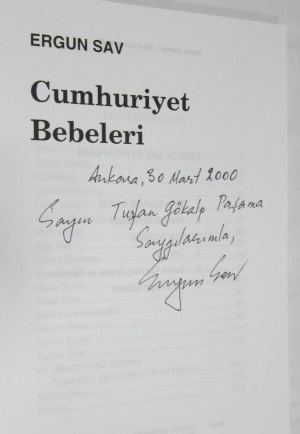 ERGUN SAV
Cumhuriyet
Bebeleri
Ankara, 30 Mart 2000
Sayın Turhan Gökalp Paşama
Saygılarımla,
Ergun Sav